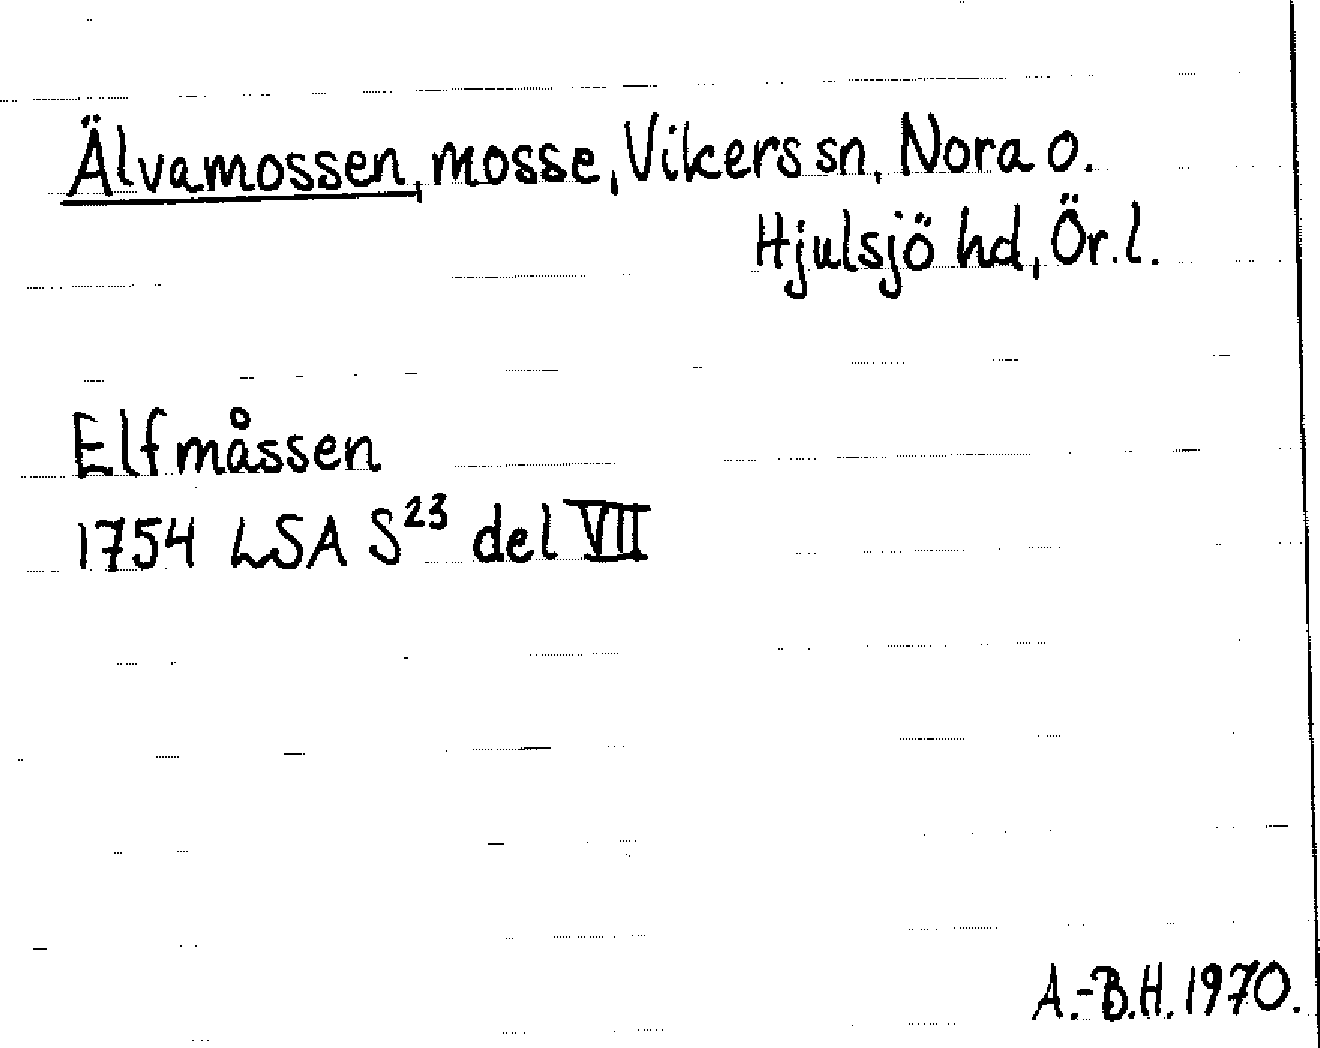 Älvamossen, mosse, Vikers sn, Nora o.
Hjulsjö hd, Ör. l.
Elfmåssen
1754 LSA S²³ del VII
A.-B.H. 1970.